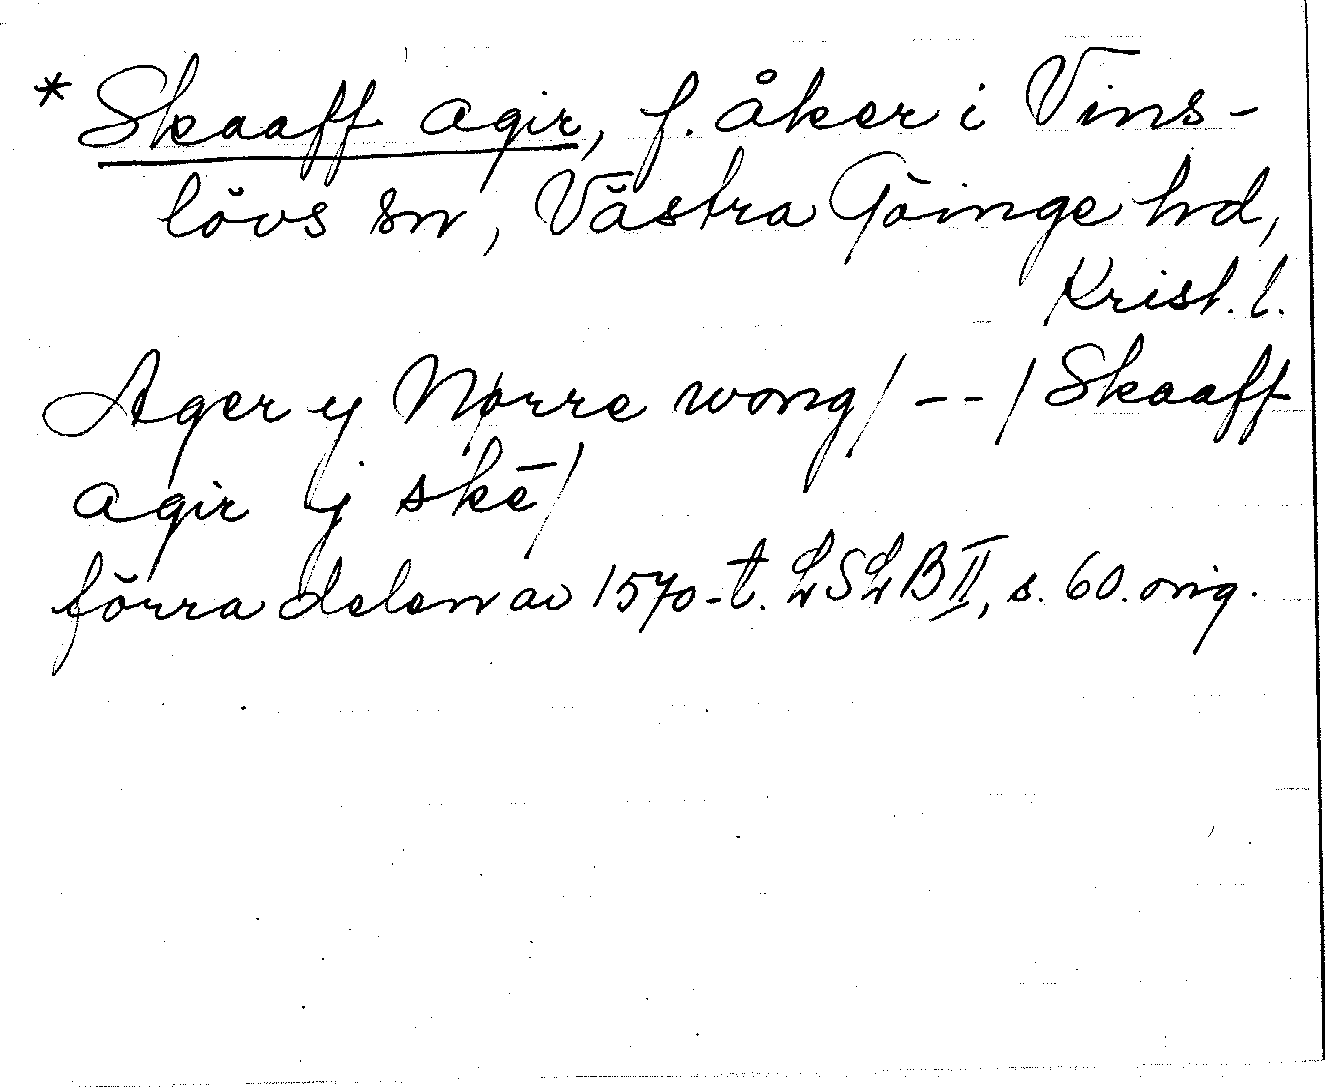 * Skaaff agir, f. åker i Vins-
lövs sn, Västra Göinge hd,
Krist. l.
Ager y Nørre wong/ -- / Skaaff
agir y skē/
förra delen av 1570-t. LSLB II, s. 60. orig.